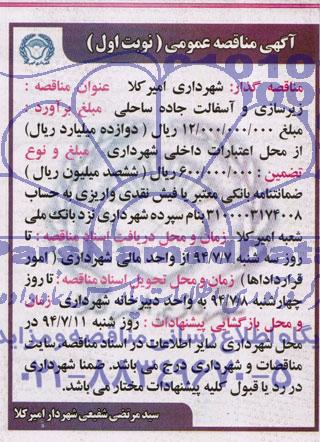 آگهی مناقصه عمومی ( نوبت اول )
مناقصه گذار: شهرداری امیرکلا   عنوان مناقصه :
زیرسازی و آسفالت جاده ساحلی   مبلغ برآورد :
مبلغ ۱۲/۰۰۰/۰۰۰/۰۰۰ ریال ( دوازده میلیارد ریال)
از محل اعتبارات داخلی شهرداری   مبلغ و نوع
تضمین : ۶۰۰/۰۰۰/۰۰۰ ریال ( ششصد میلیون ریال )
ضمانتنامه بانکی معتبر یا فیش نقدی واریزی به حساب
۳۱۰۰۰۰۳۱۷۴۰۰۸ بنام سپرده شهرداری نزد بانک ملی
شعبه امیرکلا   زمان و محل دریافت اسناد مناقصه : تا
روز سه شنبه ۹۴/۷/۷ از واحد مالی شهرداری ( امور
قراردادها)   زمان و محل تحویل اسناد مناقصه : تا روز
چهارشنبه ۹۴/۷/۸ به واحد دبیرخانه شهرداری   زمان
و محل بازگشایی پیشنهادات : روز شنبه ۹۴/۷/۱۱ در
محل شهرداری   سایر اطلاعات در اسناد مناقصه سایت
مناقصات و شهرداری درج می باشد. ضمنا شهرداری
در رد یا قبول کلیه پیشنهادات مختار می باشد.
سید مرتضی شفیعی شهردار امیرکلا